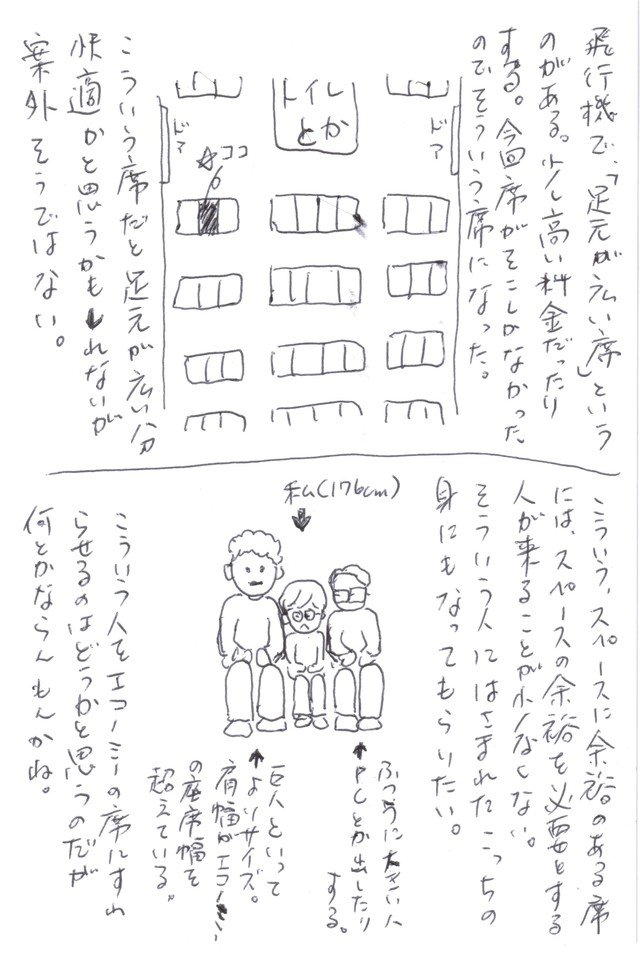 飛行機で、「足元が広い席」という
のがある。少し高い料金だったり
する。今回席がそこしかなかった
のでそういう席になった。
ドア
トイレ
とか
☆ココ
ドア
こういう席だと足元が広い分
快適かと思うかもしれないが
案外そうではない。
こういう、スペースに余裕のある席
には、スペースの余裕を必要とする
人が来ることが少なくない。
そういう人にはさまれたこっちの
身にもなってもらいたい。
私(176cm)
ふつうに大きい人
PCとか出したり
する。
巨人といって
よいサイズ。
肩幅がエコノミー
の座席幅を
超えている。
こういう人をエコノミーの席にすわ
らせるのはどうかと思うのだが
何とかならんもんかね。